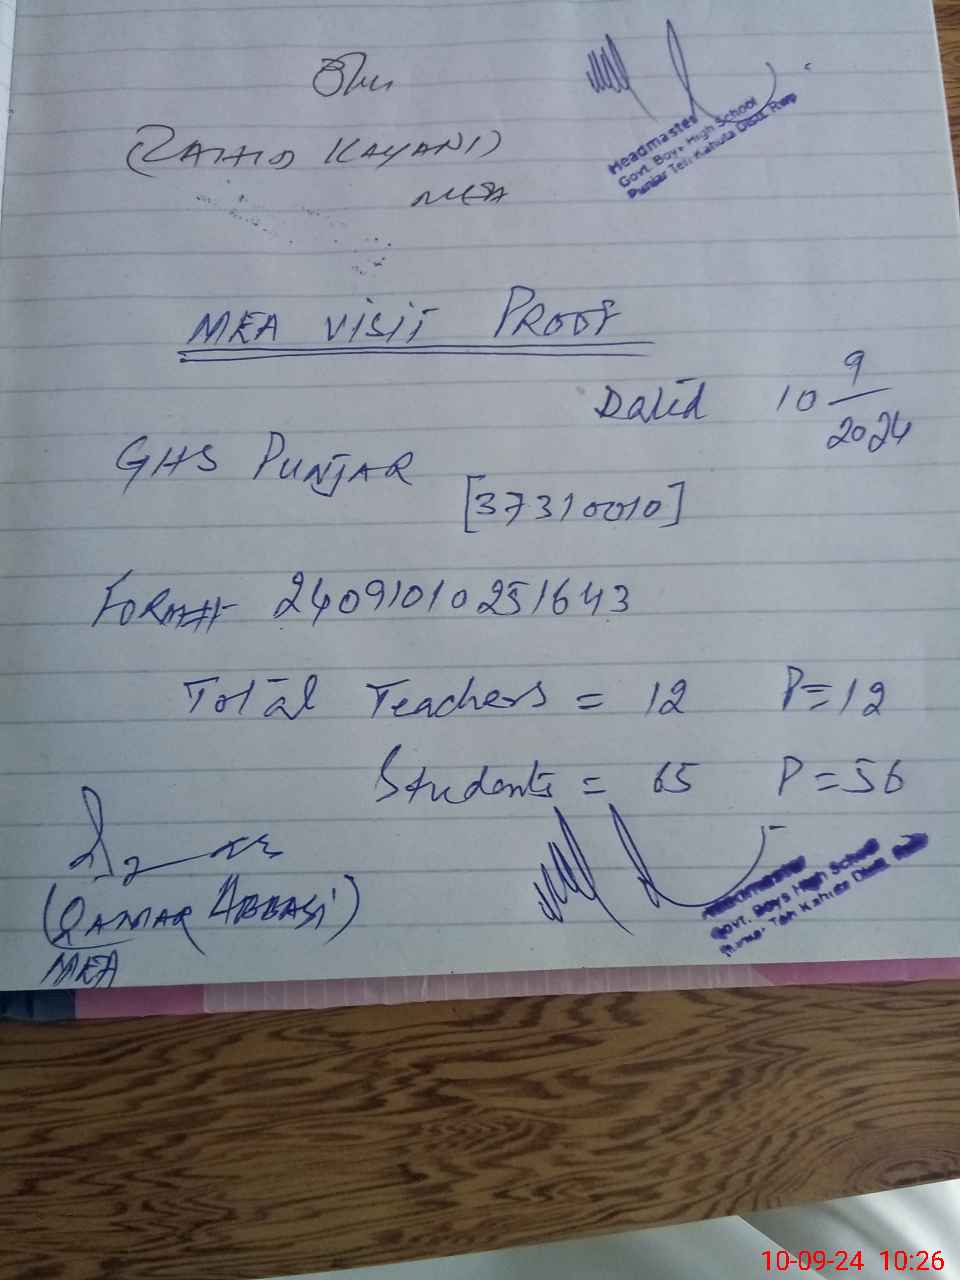 KAYANI)
MEA
Headmaster
Govt. Boys High School
Punjar Teh Kahuta Distt. Rwp
MEA VISIT PROOF
Dated 10 9/2024
GHS PUNJAR
[37310010]
FORM# 24091010251643
Total Teachers = 12 P=12
Students = 65 P=56
(QAMAR ABBASI)
MEA
Headmaster
Govt. Boys High School
Punjar Teh Kahuta Distt. Rwp
10-09-24 10:26